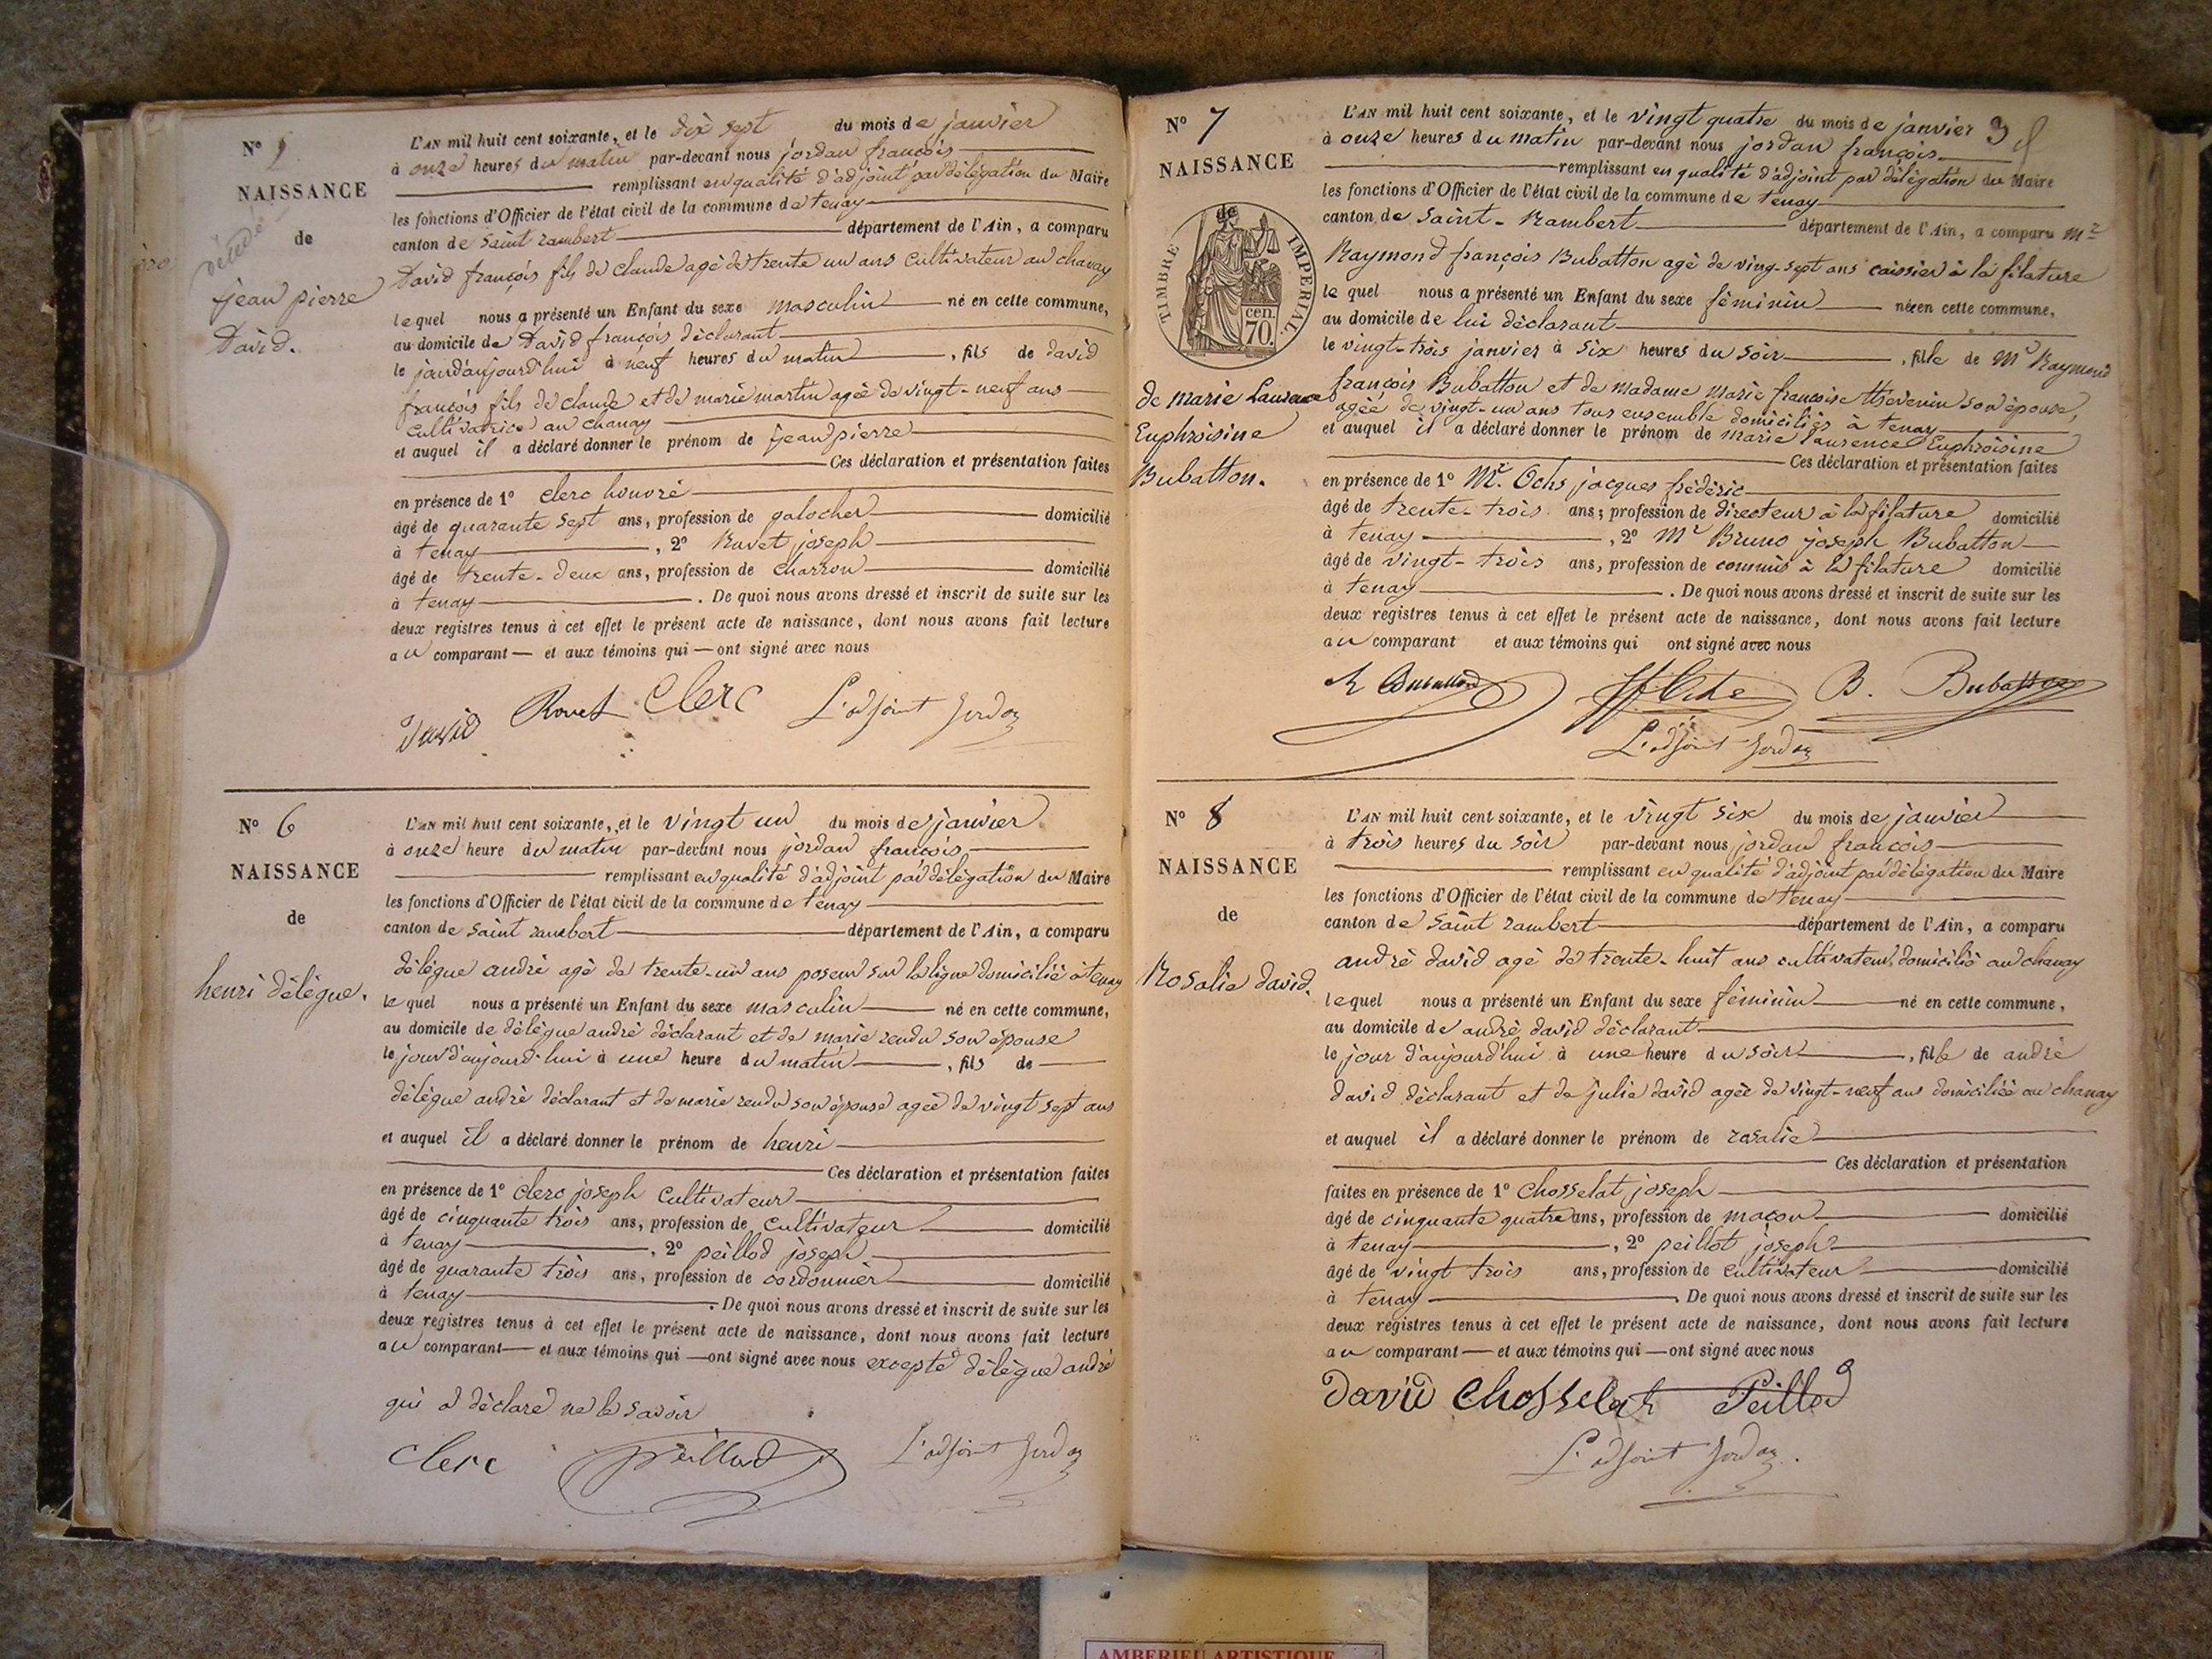 N°
NAISSANCE
de
jean pierre
David.
L'AN mil huit cent soixante, et le dix sept du mois de janvier
à onze heures du matin par-devant nous jordan françois
remplissant en qualité d'adjoint par délégation du Maire
les fonctions d'Officier de l'état civil de la commune de tenay
canton de saint rambert département de l'Ain, a comparu
David françois fils de claude agé de trente un ans cultivateur au chanay
lequel nous a présenté un Enfant du sexe masculin né en cette commune,
au domicile de David françois déclarant
le jourd'aujourd'hui à neuf heures du matin, fils de david
françois fils de claude et de marie martin agée de vingt-neuf ans
cultivatrice au chanay
et auquel il a déclaré donner le prénom de jean pierre
Ces déclaration et présentation faites
en présence de 1° clerc honoré
âgé de quarante sept ans, profession de galocher domicilié
à tenay, 2° Ravet joseph
âgé de trente-deux ans, profession de charron domicilié
à tenay. De quoi nous avons dressé et inscrit de suite sur les
deux registres tenus à cet effet le présent acte de naissance, dont nous avons fait lecture
au comparant et aux témoins qui ont signé avec nous
David Ravet Clerc L'adjoint Jordan
N° 6
NAISSANCE
de
henri délègue.
L'AN mil huit cent soixante, et le vingt un du mois de janvier
à onze heure du matin par-devant nous jordan françois
remplissant en qualité d'adjoint par délégation du Maire
les fonctions d'Officier de l'état civil de la commune de tenay
canton de saint rambert département de l'Ain, a comparu
délègue andré agé de trente-un ans poseur sur la ligne domicilié à tenay
lequel nous a présenté un Enfant du sexe masculin né en cette commune,
au domicile de délègue andré déclarant et de marie rendu son épouse
le jour d'aujourd'hui à une heure du matin, fils de
délègue andré déclarant et de marie rendu son épouse agée de vingt sept ans
et auquel il a déclaré donner le prénom de henri
Ces déclaration et présentation faites
en présence de 1° clerc joseph cultivateur
âgé de cinquante trois ans, profession de cultivateur domicilié
à tenay, 2° peillod joseph
âgé de quarante trois ans, profession de cordonnier domicilié
à tenay. De quoi nous avons dressé et inscrit de suite sur les
deux registres tenus à cet effet le présent acte de naissance, dont nous avons fait lecture
au comparant et aux témoins qui ont signé avec nous excepté délègue andré
qui a déclaré ne le savoir
Clerc peillod L'adjoint Jordan
N° 7
NAISSANCE
de
TIMBRE IMPERIAL.
cen. 70.
de marie Laurence
Euphroisine
Bubatton.
L'AN mil huit cent soixante, et le vingt quatre du mois de janvier 3
à onze heures du matin par-devant nous jordan françois
remplissant en qualité d'adjoint par délégation du Maire
les fonctions d'Officier de l'état civil de la commune de tenay
canton de saint-Rambert département de l'Ain, a comparu Mr
Raymond françois Bubatton agé de ving-sept ans caissier à la filature
lequel nous a présenté un Enfant du sexe féminin née en cette commune,
au domicile de lui déclarant
le vingt-trois janvier à six heures du soir, fille de Mr Raymond
françois Bubatton et de madame marie françoise thevenin son épouse,
agée de vingt-un ans tous ensemble domiciliés à tenay
et auquel il a déclaré donner le prénom de marie laurence Euphroisine
Ces déclaration et présentation faites
en présence de 1° Mr. Ochs jacques frédéric
âgé de trente-trois ans; profession de directeur à la filature domicilié
à tenay, 2° Mr Bruno joseph Bubatton
âgé de vingt-trois ans, profession de commis à la filature domicilié
à tenay. De quoi nous avons dressé et inscrit de suite sur les
deux registres tenus à cet effet le présent acte de naissance, dont nous avons fait lecture
au comparant et aux témoins qui ont signé avec nous
R Bubatton B. Bubatton
L'adjoint Jordan
N° 8
NAISSANCE
de
Rosalie david.
L'AN mil huit cent soixante, et le vingt six du mois de janvier
à trois heures du soir par-devant nous jordan françois
remplissant en qualité d'adjoint par délégation du Maire
les fonctions d'Officier de l'état civil de la commune de tenay
canton de saint rambert département de l'Ain, a comparu
andré david agé de trente-huit ans cultivateur domicilié au chanay
lequel nous a présenté un Enfant du sexe féminin né en cette commune,
au domicile de andré david déclarant
le jour d'aujourd'hui à une heure du soir, fille de andré
david déclarant et de julie david agée de vingt-neuf ans domiciliée au chanay
et auquel il a déclaré donner le prénom de rosalie
Ces déclaration et présentation
faites en présence de 1° chosselat joseph
âgé de cinquante quatre ans, profession de maçon domicilié
à tenay, 2° peillot joseph
âgé de vingt trois ans, profession de cultivateur domicilié
à tenay. De quoi nous avons dressé et inscrit de suite sur les
deux registres tenus à cet effet le présent acte de naissance, dont nous avons fait lecture
au comparant et aux témoins qui ont signé avec nous
David Chosselat Peillod
L'adjoint Jordan.
AMBERIEU ARTISTIQUE